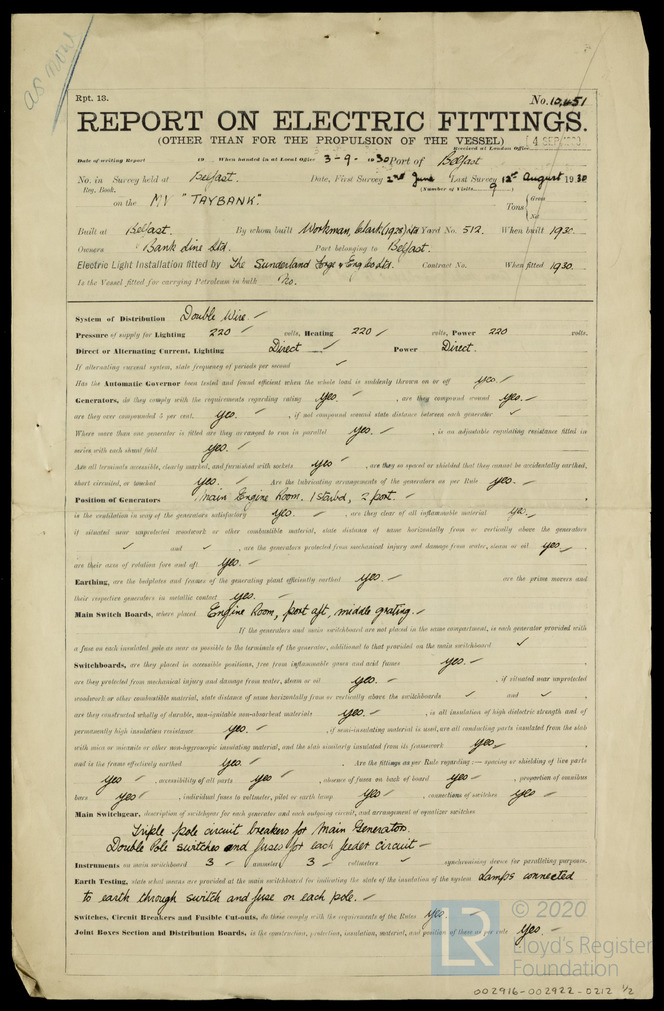 as now
Rpt. 13.
No. 10,451
REPORT ON ELECTRIC FITTINGS.
(OTHER THAN FOR THE PROPULSION OF THE VESSEL)
Received at London Office 4 SEP 1930
Date of writing Report 19 When handed in at Local Office 3-9-1930 Port of Belfast
No. in Survey held at Belfast. Date, First Survey 2nd June Last Survey 12th August 1930
Reg. Book. (Number of Visits 9)
on the MV "TAYBANK". Tons { Gross Net
Built at Belfast. By whom built Workman, Clark (1928) Ltd Yard No. 512. When built 1930.
Owners Bank Line Ltd. Port belonging to Belfast.
Electric Light Installation fitted by The Sunderland Forge & Eng Co Ltd. Contract No. When fitted 1930.
Is the Vessel fitted for carrying Petroleum in bulk No.
System of Distribution Double Wire. ✓
Pressure of supply for Lighting 220 ✓ volts, Heating 220 ✓ volts, Power 220 volts.
Direct or Alternating Current, Lighting Direct ✓ Power Direct.
If alternating current system, state frequency of periods per second ✓
Has the Automatic Governor been tested and found efficient when the whole load is suddenly thrown on or off yes. ✓
Generators, do they comply with the requirements regarding rating yes. ✓ , are they compound wound yes. ✓
are they over compounded 5 per cent. yes. ✓ , if not compound wound state distance between each generator ✓
Where more than one generator is fitted are they arranged to run in parallel yes. ✓ , is an adjustable regulating resistance fitted in
series with each shunt field yes. ✓
Are all terminals accessible, clearly marked, and furnished with sockets yes ✓ , are they so spaced or shielded that they cannot be accidentally earthed,
short circuited, or touched yes. ✓ Are the lubricating arrangements of the generators as per Rule yes. ✓
Position of Generators Main Engine Room. 1 starbd, 2 port. ✓
is the ventilation in way of the generators satisfactory yes. ✓ , are they clear of all inflammable material yes. ✓
if situated near unprotected woodwork or other combustible material, state distance of same horizontally from or vertically above the generators
✓ and ✓ , are the generators protected from mechanical injury and damage from water, steam or oil yes. ✓
are their axes of rotation fore and aft yes. ✓
Earthing, are the bedplates and frames of the generating plant efficiently earthed yes. ✓ are the prime movers and
their respective generators in metallic contact yes. ✓
Main Switch Boards, where placed Engine Room, port aft, middle grating. ✓
If the generators and main switchboard are not placed in the same compartment, is each generator provided with
a fuse on each insulated pole as near as possible to the terminals of the generator, additional to that provided on the main switchboard ✓
Switchboards, are they placed in accessible positions, free from inflammable gases and acid fumes yes. ✓
are they protected from mechanical injury and damage from water, steam or oil yes. ✓ , if situated near unprotected
woodwork or other combustible material, state distance of same horizontally from or vertically above the switchboards ✓ and ✓
are they constructed wholly of durable, non-ignitable non-absorbent materials yes. ✓ , is all insulation of high dielectric strength and of
permanently high insulation resistance yes. ✓ , if semi-insulating material is used, are all conducting parts insulated from the slab
with mica or micanite or other non-hygroscopic insulating material, and the slab similarly insulated from its framework yes ✓
and is the frame effectively earthed yes. ✓ Are the fittings as per Rule regarding:— spacing or shielding of live parts
yes ✓ , accessibility of all parts yes ✓ , absence of fuses on back of board yes ✓ , proportion of omnibus
bars yes ✓ , individual fuses to voltmeter, pilot or earth lamp yes. ✓ , connections of switches yes ✓
Main Switchgear, description of switchgear for each generator and each outgoing circuit, and arrangement of equaliser switches
Triple pole circuit breakers for Main Generators.
Double Pole switches and fuses for each feeder circuit —
Instruments on main switchboard 3 ✓ ammeters 3 ✓ voltmeters ✓ synchronising device for paralleling purposes.
Earth Testing, state what means are provided at the main switchboard for indicating the state of the insulation of the system Lamps connected
to earth through switch and fuse on each pole. ✓
Switches, Circuit Breakers and Fusible Cut-outs, do these comply with the requirements of the Rules yes. ✓
Joint Boxes Section and Distribution Boards, is the construction, protection, insulation, material, and position of these as per rule yes. ✓
LR
© 2020
Lloyd's Register
Foundation
002916-002922-0212 1/2